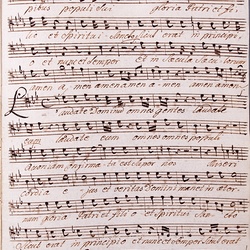 pibus populi sui. gloria Patri et fi
lio et Spiritui Sancto sicut erat in principi
o et nunc et semper et in Saecula Saeculorum
amen amen amen amen amen
Laudate Dominum omnes gentes laudate
eum laudate eum omnes omnes populi
quoniam confirmata est super nos Miseri
cordia ejus et veritas Domini manet in aeter
num gloria Patri et filio et Spiritui Sancto
Sicut erat in principio et nunc et semper et in Saecula